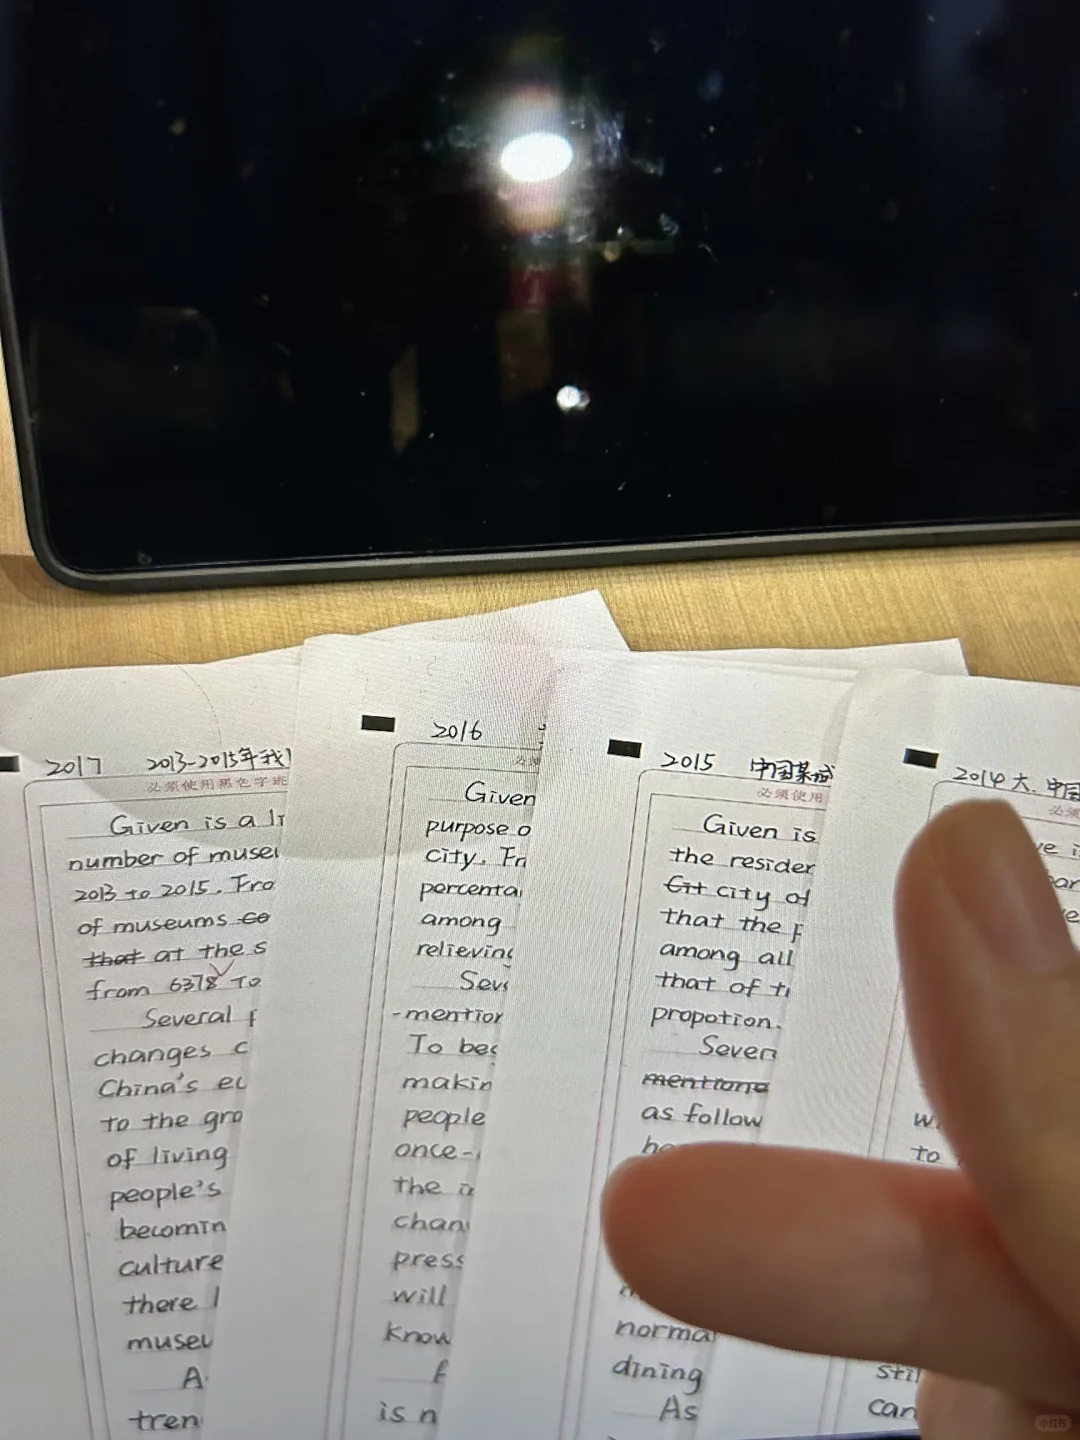 2017 2013-2015年我
必须使用黑色字迹
Given is a li
number of muse
2013 to 2015. Fro
of museums co
that at the s
from 6378 to
Several f
changes c
China's ec
to the gro
of living
people's
becomin
culture
there l
museu
A
tren
2016
必须
Given
purpose o
city. Fr
percenta
among
relieving
Seve
-mention
To bec
makin
people
once-
the in
chan
press
will
know
is n
2015 中国某城
必须使用
Given is
the residen
Cit city of
that the p
among all
that of t
propotion.
Severa
mentiona
as follow
norma
dining
As
2014 大. 中国
必须
ve i
to
stil
can
小红书